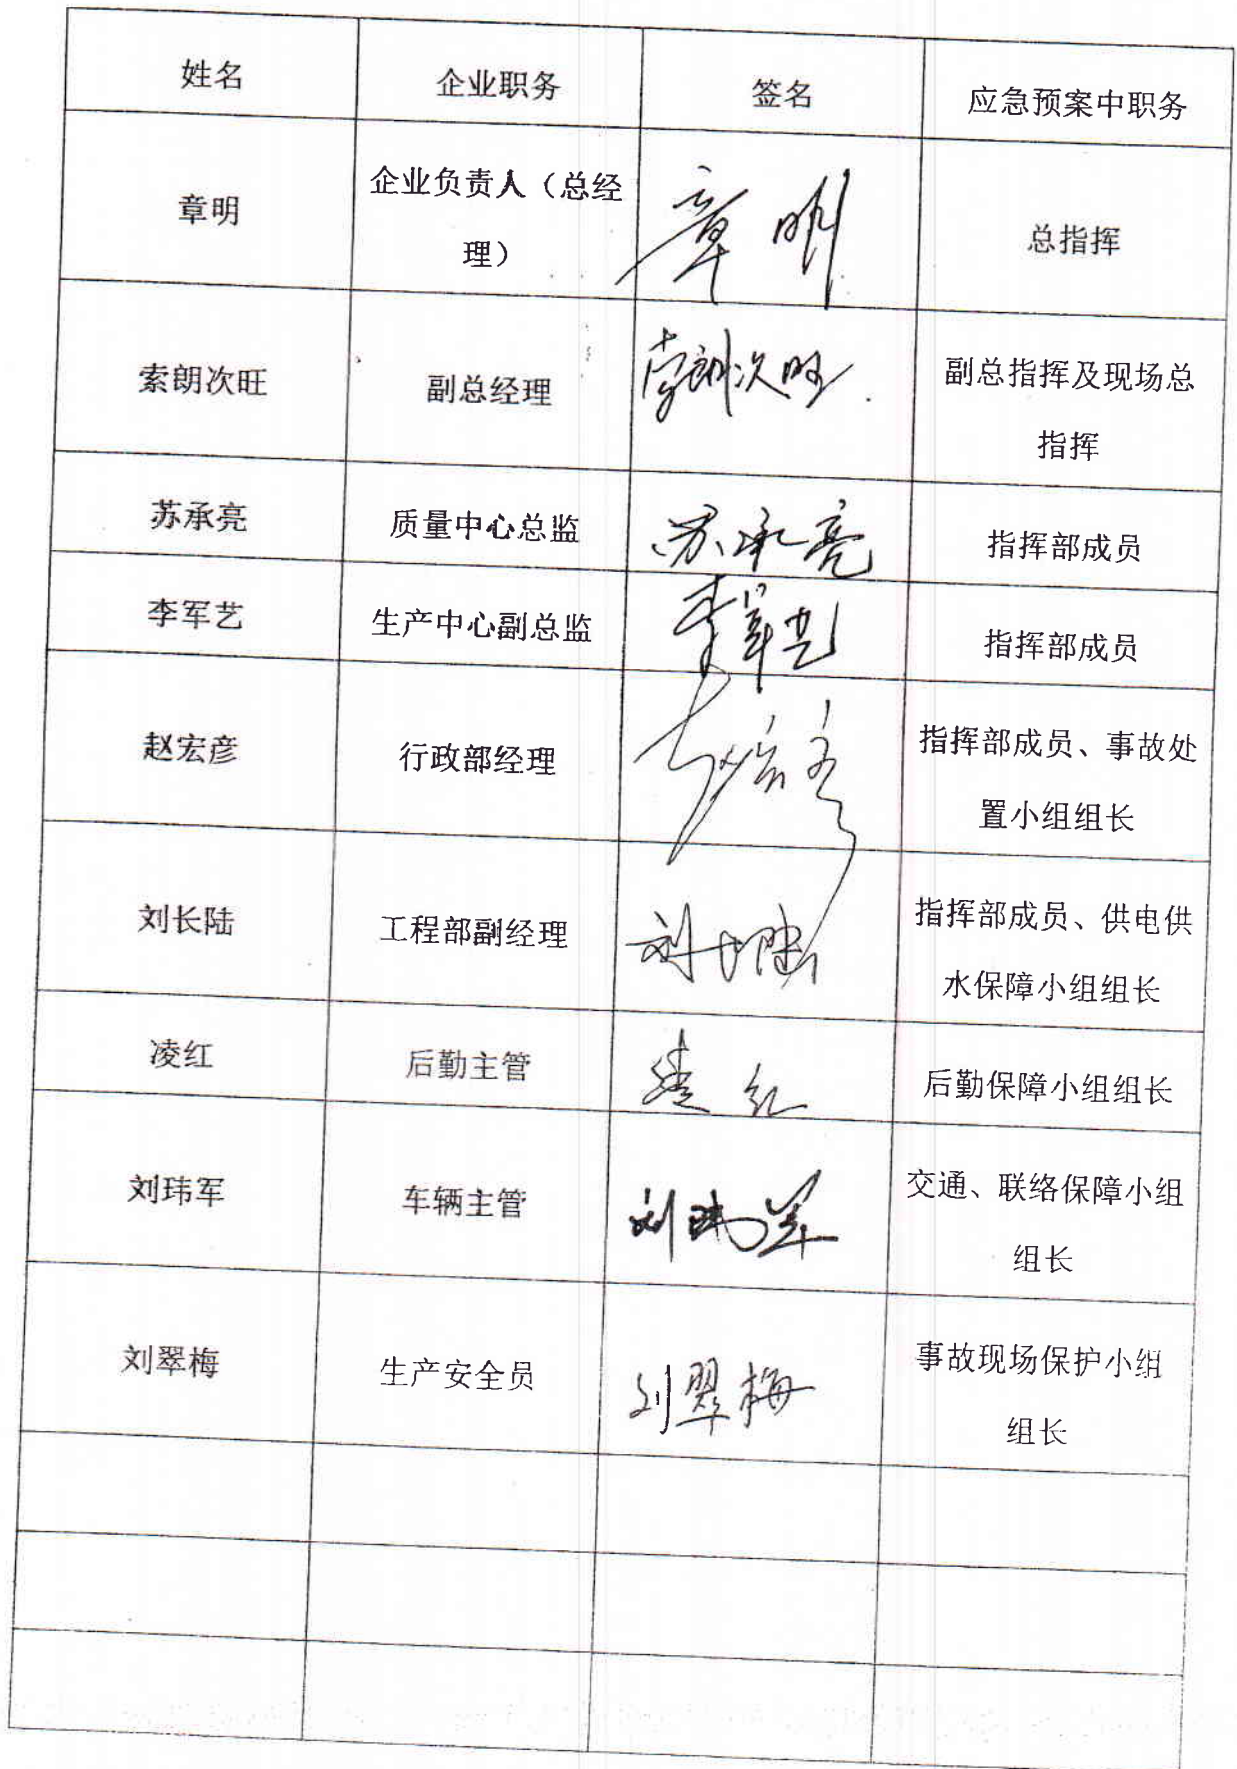 姓名 企业职务 签名 应急预案中职务
章明 企业负责人（总经 章明 总指挥
理）
索朗次旺 副总经理 索朗次旺 副总指挥及现场总
指挥
苏承亮 质量中心总监 苏承亮 指挥部成员
李军艺 生产中心副总监 李军艺 指挥部成员
赵宏彦 行政部经理 赵宏彦 指挥部成员、事故处
置小组组长
刘长陆 工程部副经理 刘长陆 指挥部成员、供电供
水保障小组组长
凌红 后勤主管 凌红 后勤保障小组组长
刘玮军 车辆主管 刘玮军 交通、联络保障小组
组长
刘翠梅 生产安全员 刘翠梅 事故现场保护小组
组长